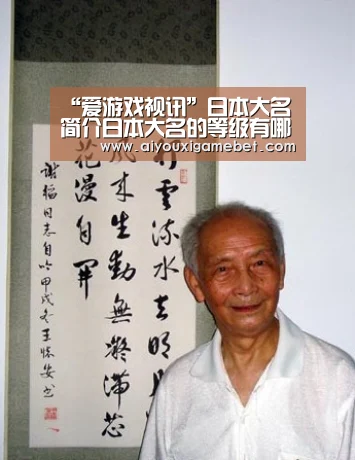 “爱游戏视讯”日本大名
简介日本大名的等级有哪
www.aiyouxigamebet.com
行雲流水去明月
風来生動無滞蕊
花漫自開
謝同志自吟甲戌冬王懷安书